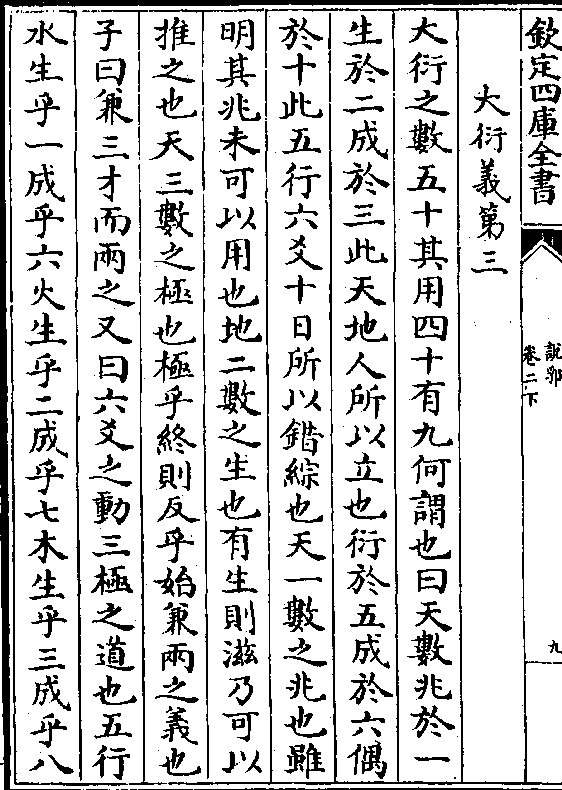 欽定四庫全書
說郛
卷二下
九
大衍義第三
大衍之數五十其用四十有九何謂也曰天數兆於一
生於二成於三此天地人所以立也衍於五成於六偶
於十此五行六爻十日所以錯綜也天一數之兆也雖
明其兆未可以用也地二數之生也有生則滋乃可以
推之也天三數之極也極乎終則反乎始兼兩之義也
子曰兼三才而兩之又曰六爻之動三極之道也五行
水生乎一成乎六火生乎二成乎七木生乎三成乎八